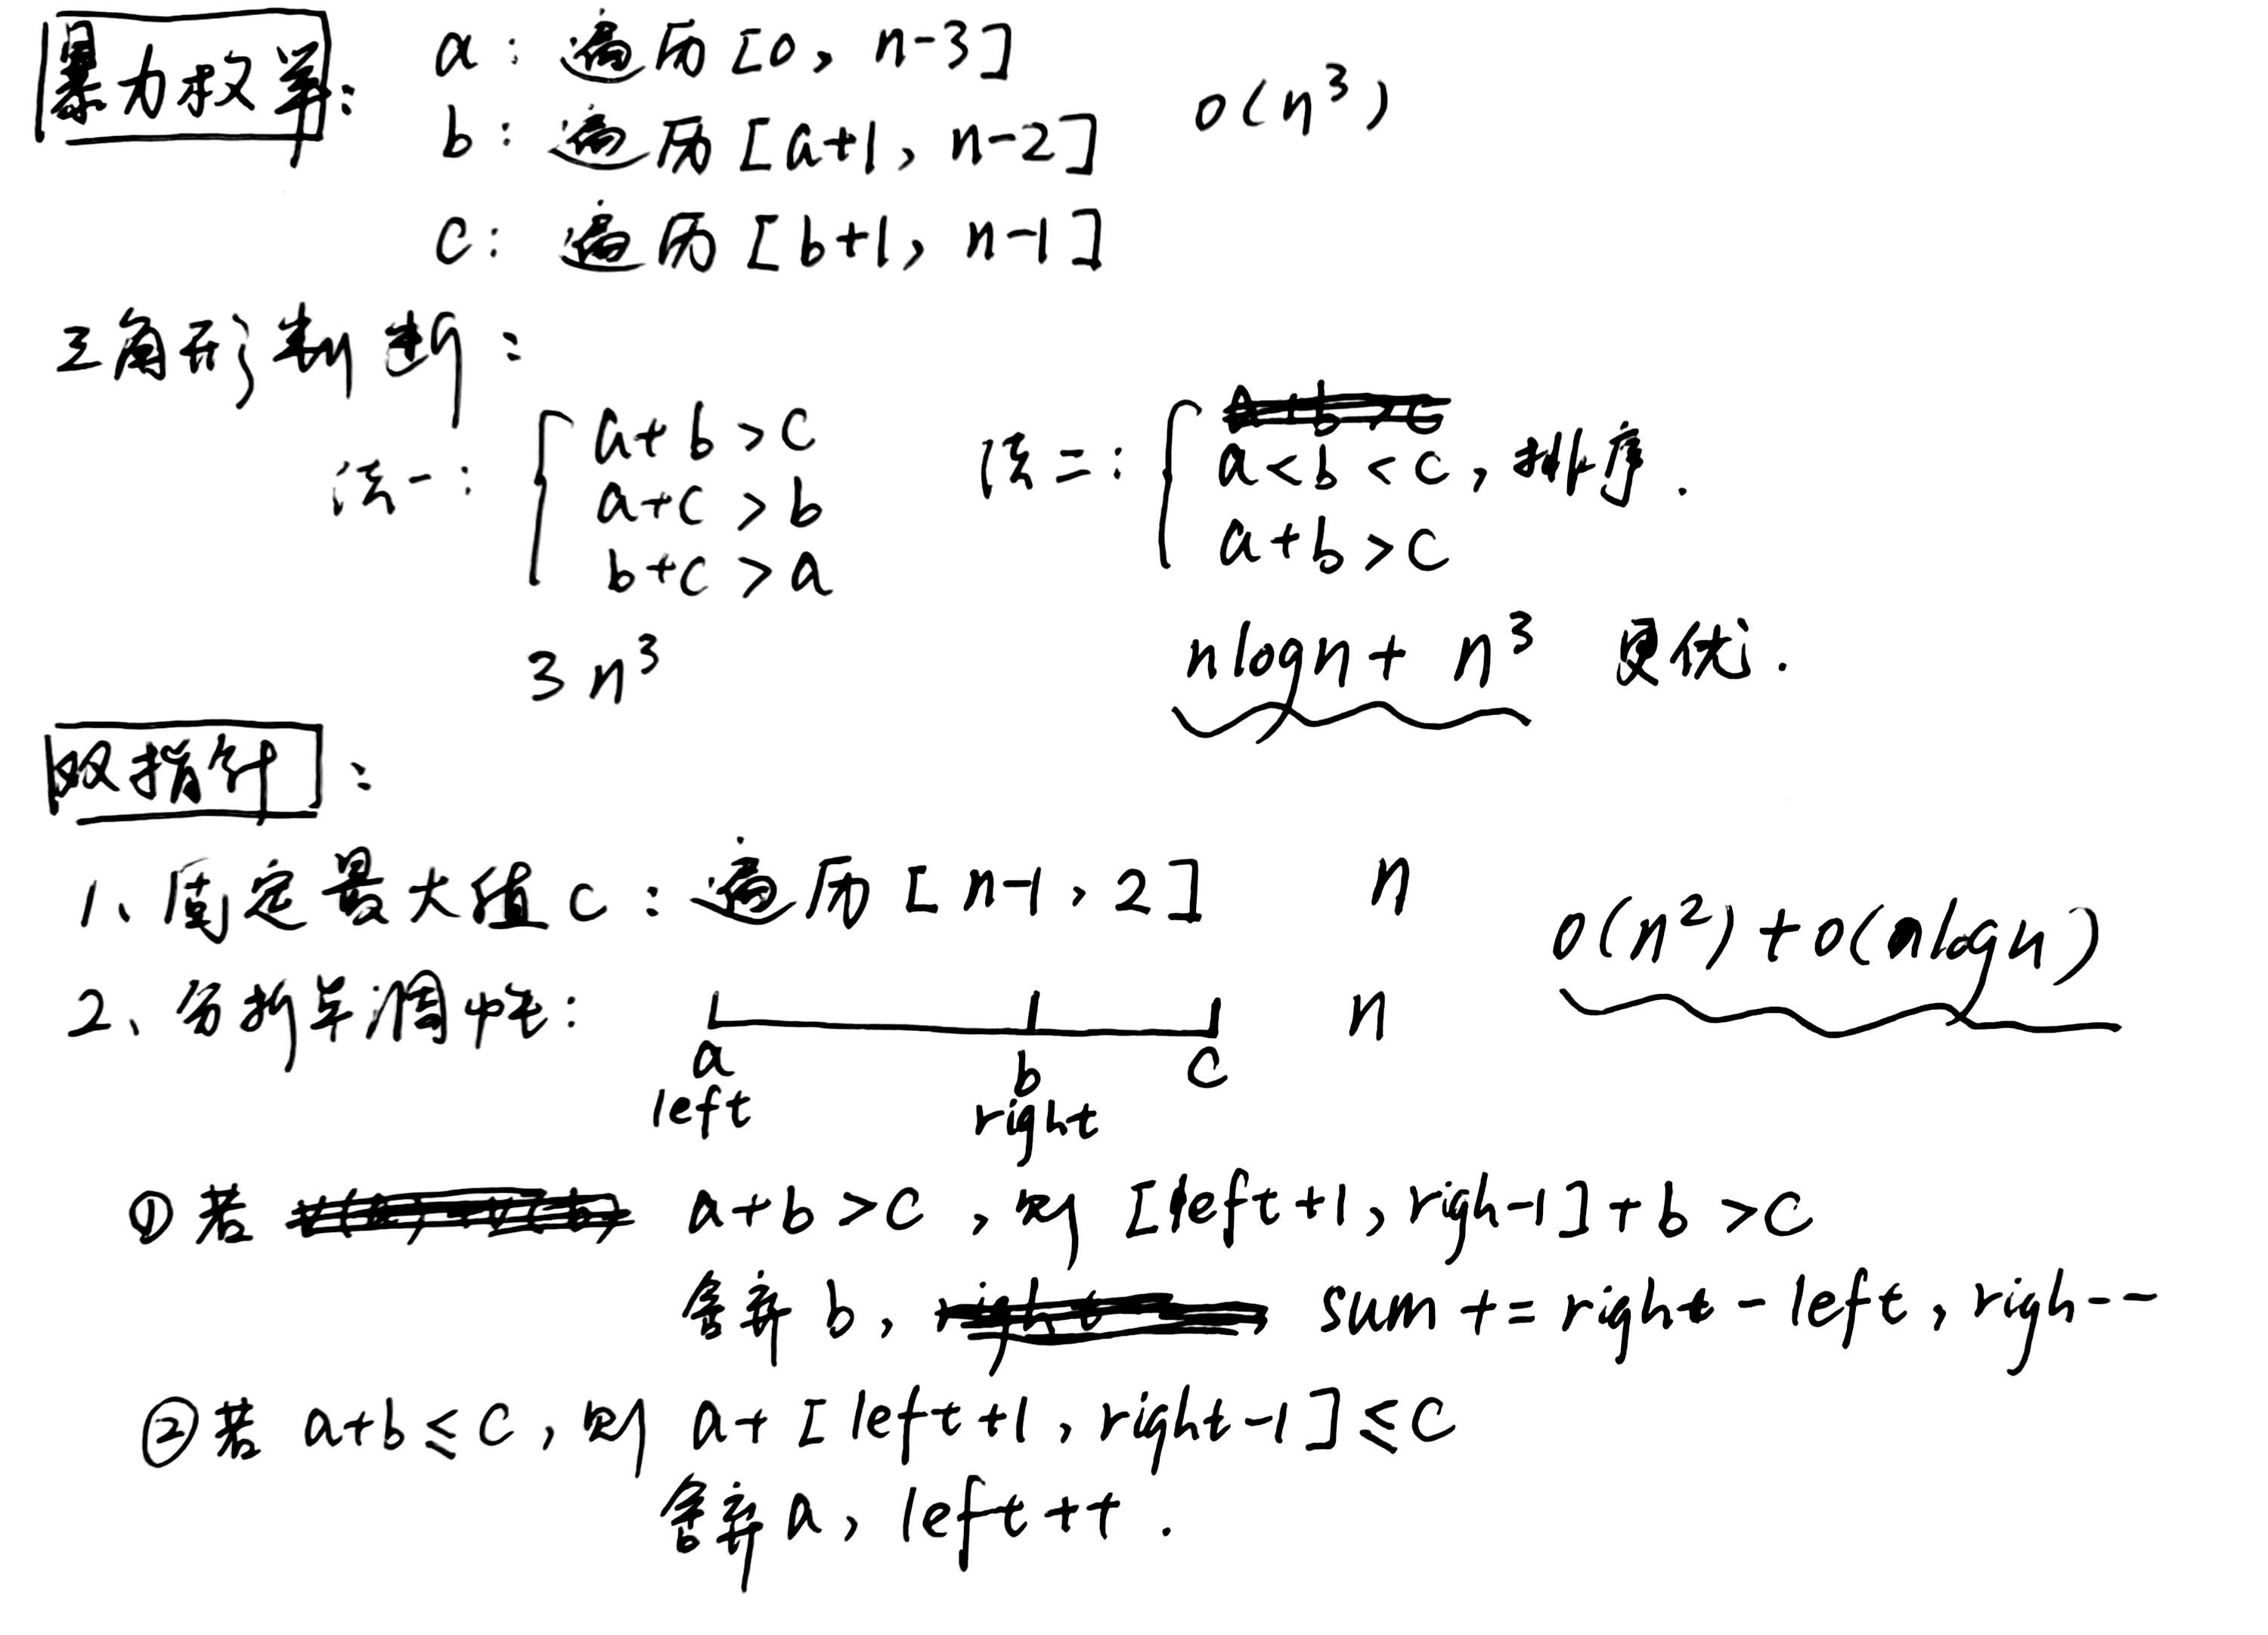 暴力枚举: a: 遍历 [0, n-3]
b: 遍历 [a+1, n-2] O(n³)
c: 遍历 [b+1, n-1]
三角形判断:
法一: { a+b>c 法二: { a<b<c, 排序.
a+c>b a+b>c
b+c>a
3n³ nlogn + n³ 更优.
双指针:
1、固定最大值c: 遍历 [n-1, 2] n
O(n²)+O(nlogn)
2、分析单调性: n
a b c
left right
①若 a+b>c, 则 [left+1, righ-1]+b>c
舍弃 b, sum += right - left, righ--
②若 a+b≤c, 则 a+[left+1, right-1]≤c
舍弃 a, left++.